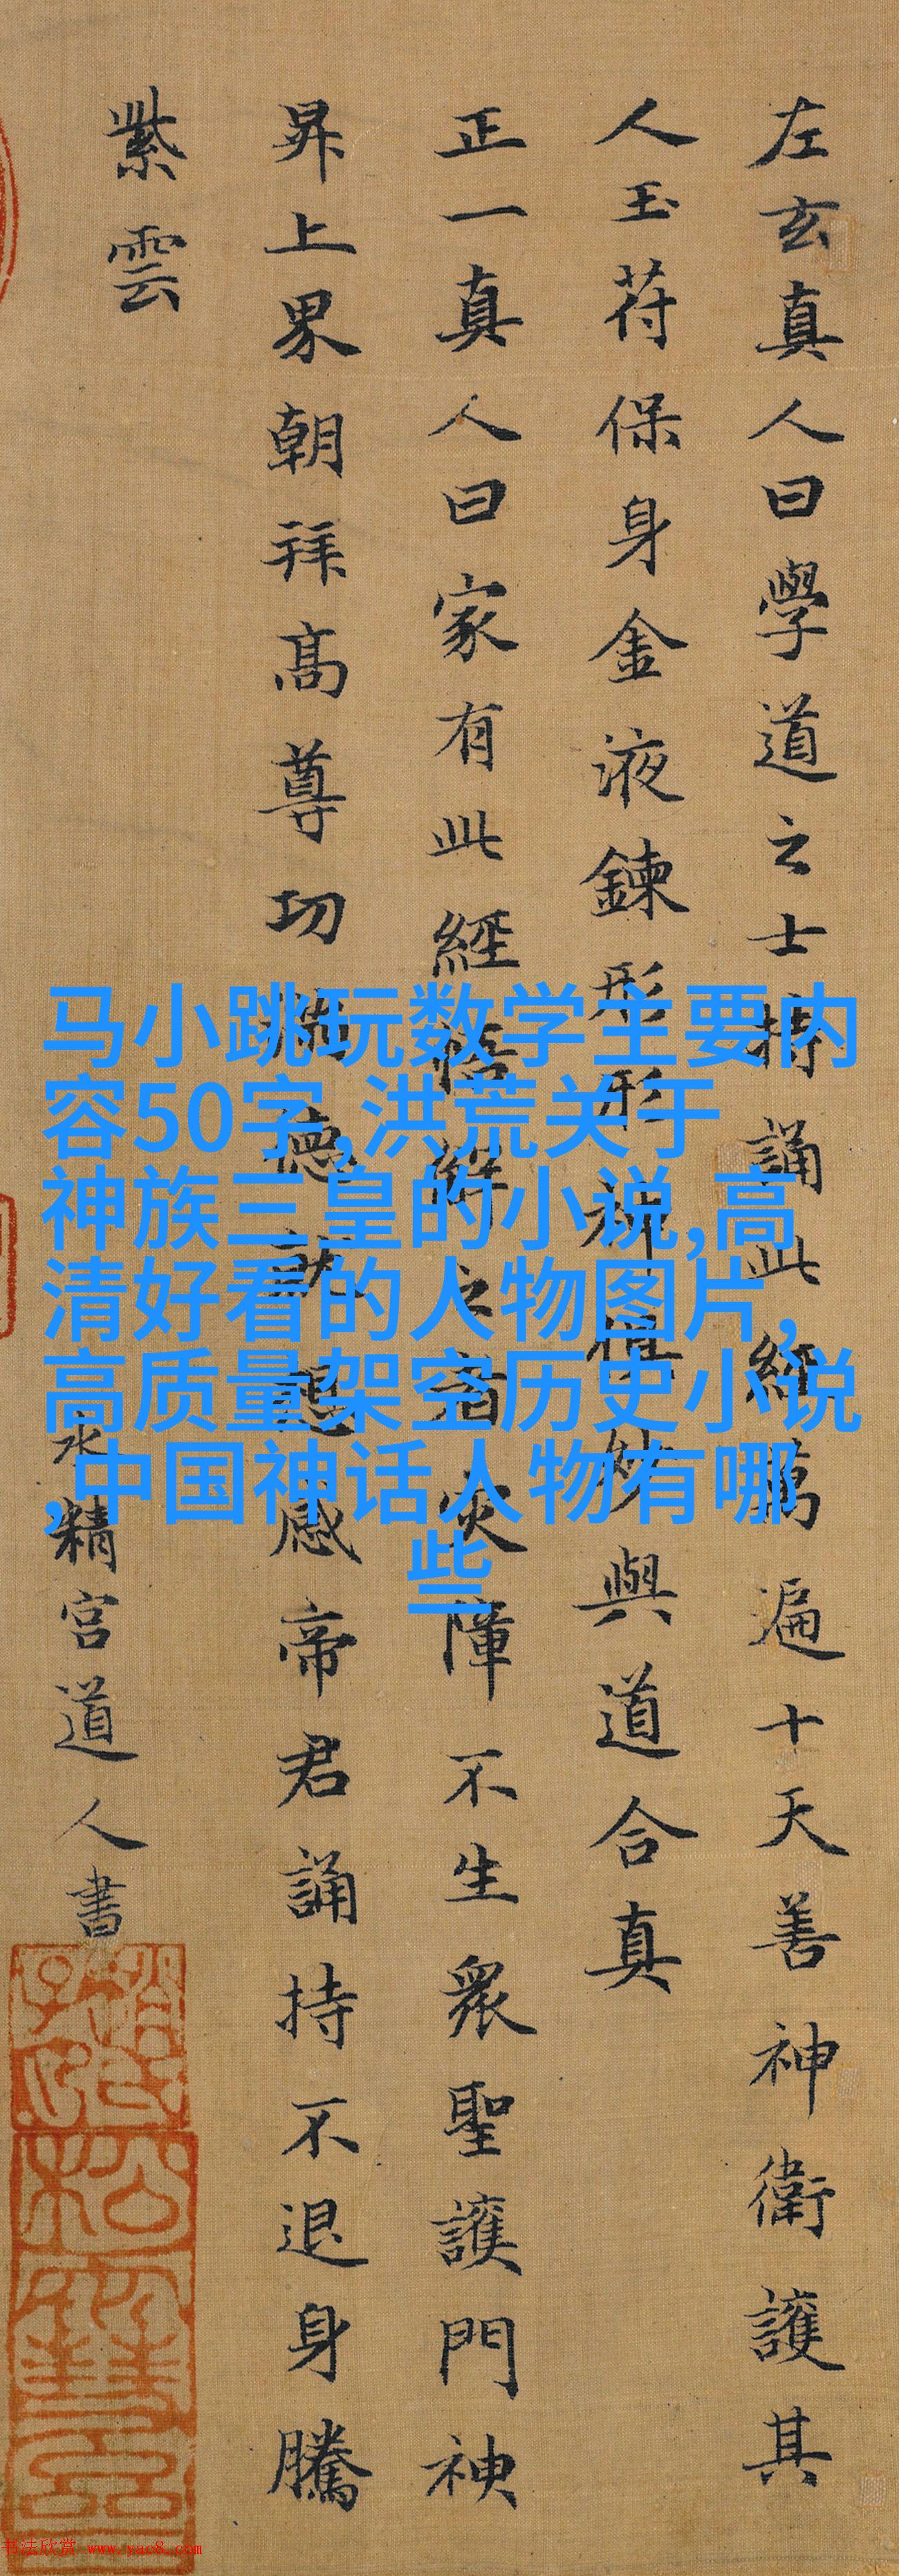 左玄真人曰學道之士持誦此經萬遍十天善神衛護其
人玉苻保身金液鍊形形神俱妙與道合真
正一真人曰家有此經悟解之者灾障不生衆聖護門神
昇上界朝拜髙尊功滿德就想感帝君誦持不退身騰
紫雲
水精宮道人書
马小跳玩数学主要内
容50字,洪荒关于
神族三皇的小说,高
清好看的人物图片,
高质量架空历史小说
,中国神话人物有哪
些
书法欣赏 www.yac8.com